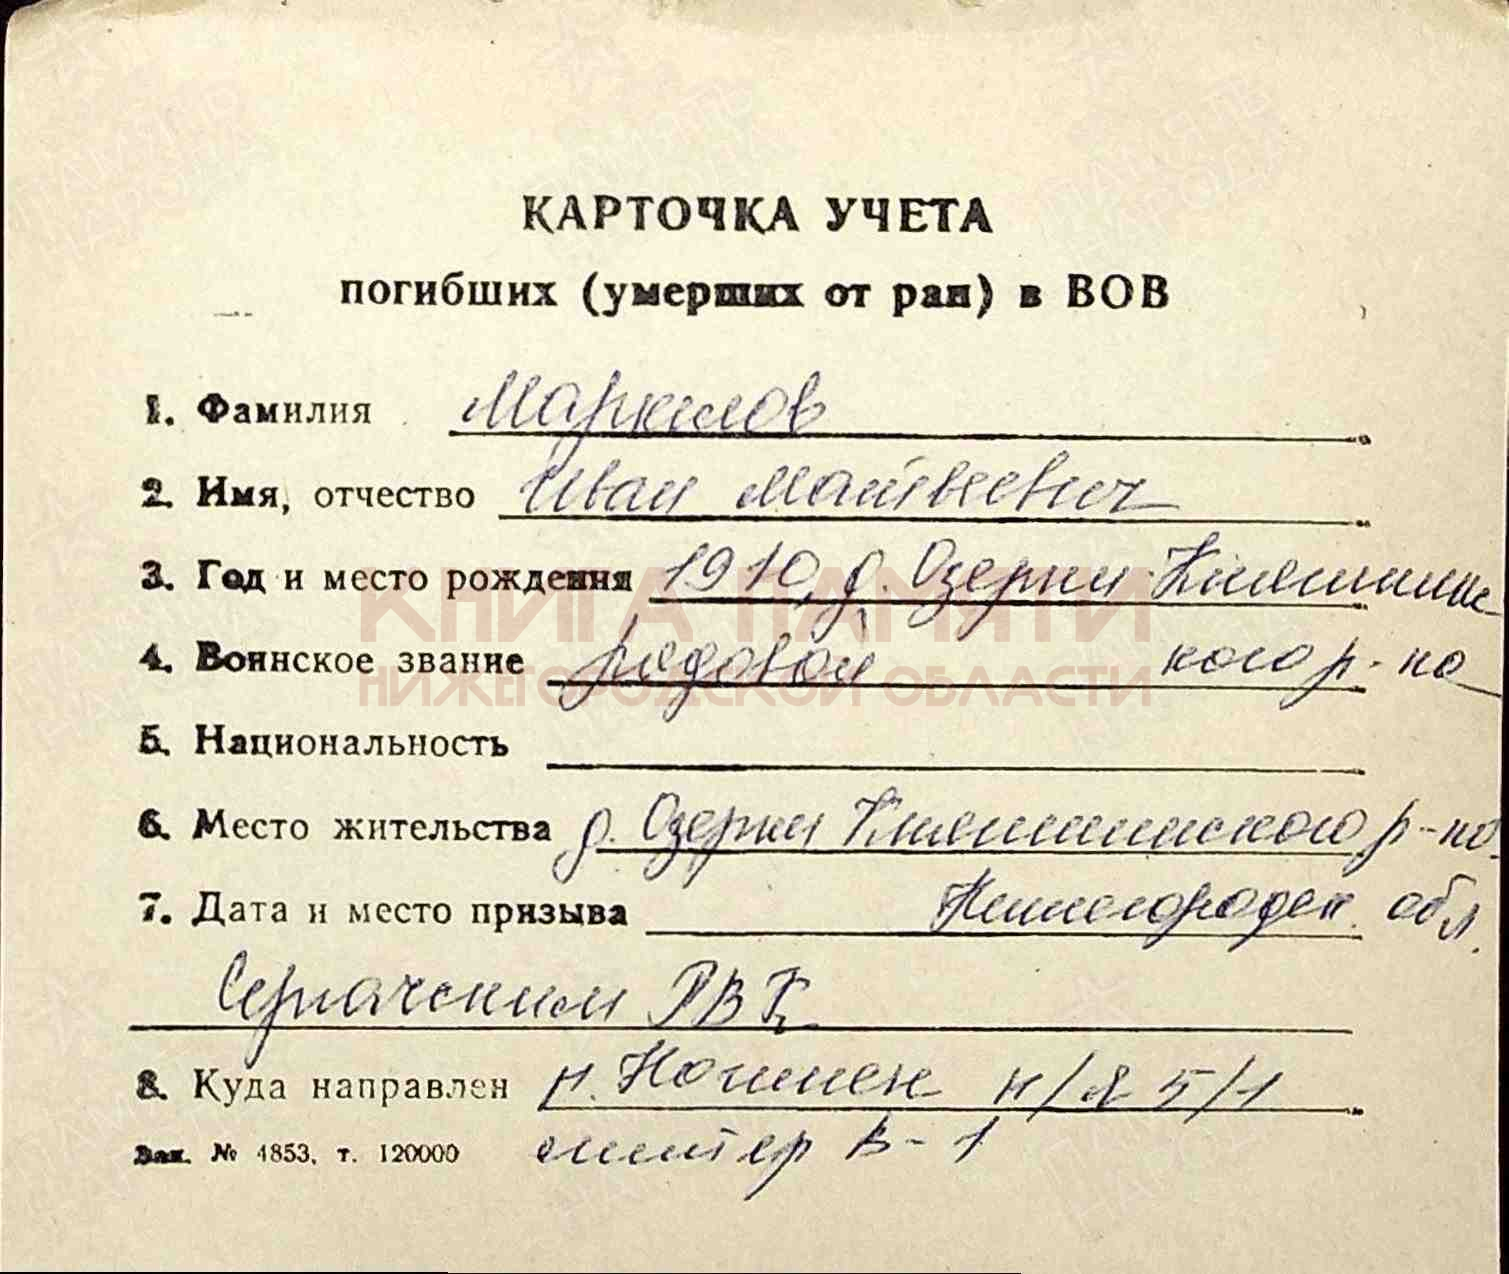 КАРТОЧКА УЧЕТА
погибших (умерших от ран) в ВОВ
1. Фамилия Маркелов
2. Имя, отчество Иван Матвеевич
3. Год и место рождения 1910, д. Озерки Княгининс
4. Воинское звание рядовой кого р-на
КНИГА ПАМЯТИ
НИЖЕГОРОДСКОЙ ОБЛАСТИ
5. Национальность
6. Место жительства д. Озерки Княгининского р-на
7. Дата и место призыва Нижегородск. обл.
Сергачским РВК
8. Куда направлен п/я 5/1
Зак. № 4853, т. 120000 литер В-1